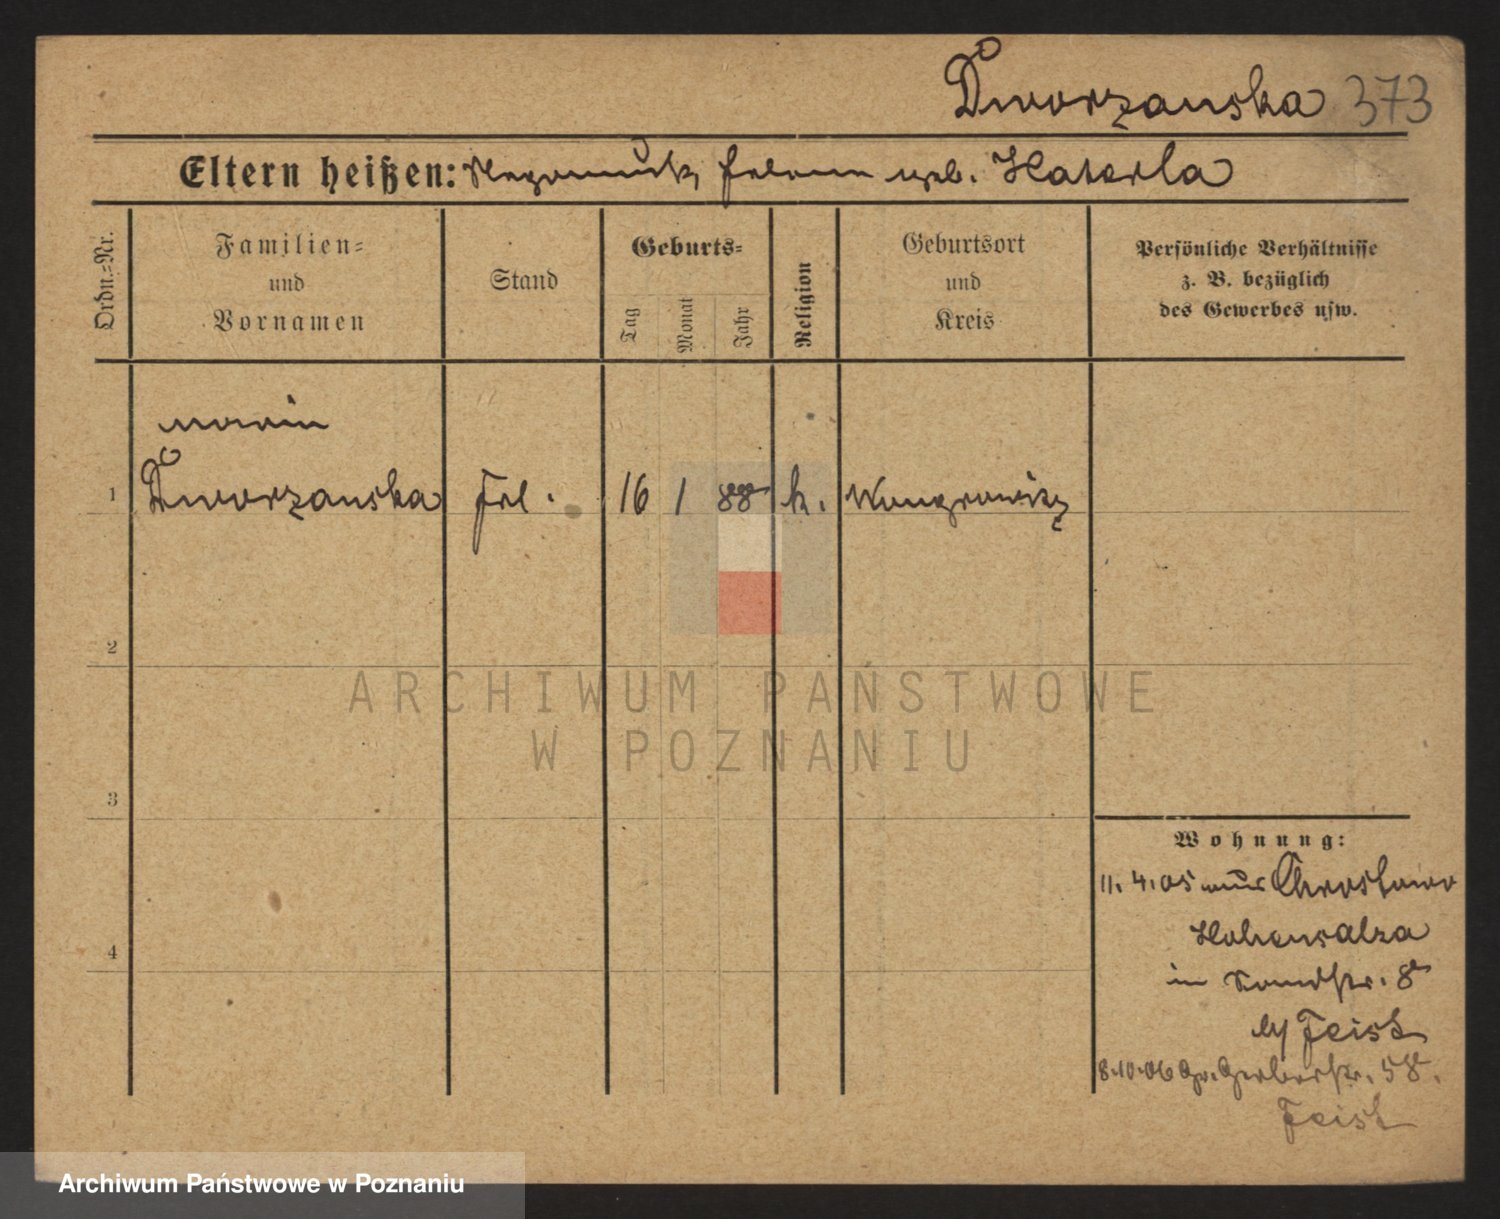 Dworzanska 373
Eltern heißen: Nepomuk, Helene geb. Katarla
Ordn.-Nr.
Familien-
und
Vornamen
Stand
Geburts-
Tag
Monat
Jahr
Religion
Geburtsort
und
Kreis
Persönliche Verhältnisse
z. B. bezüglich
des Gewerbes usw.
1
Dworzanska Frl. 16 1 88 k. Wongrowitz
2
ARCHIWUM PAŃSTWOWE
W POZNANIU
3
Wohnung:
11.4.05 aus Chrostowo
Hohensalza
in
8
Feist
4
8.10.06 Gr. Gerberstr. 58.
Feist
Archiwum Państwowe w Poznaniu